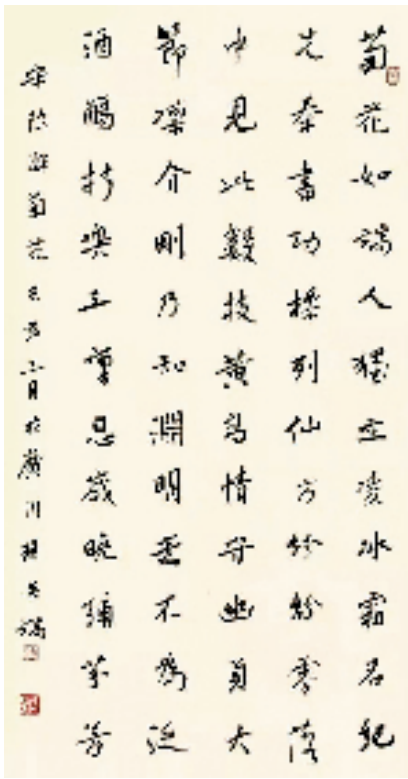 菊花如端人獨立凌冰霜名紀
先秦書功標列仙方紛紛零落
中見此數枝黃高情守幽貞大
節凜介剛乃知淵明意不為泛
酒觴折嗅三嘆息歲晚彌芬芳
宋陸游菊花己亥六月於廣州